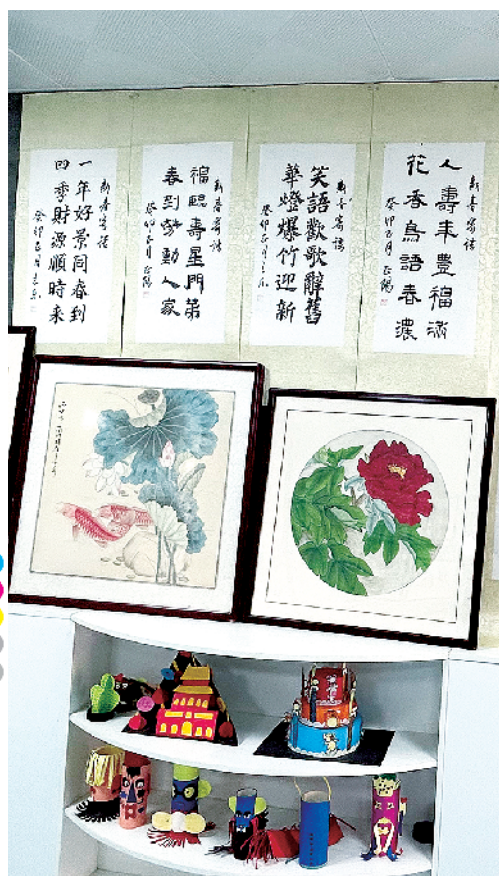 新春寄語
人壽年豐福滿
花香鳥語春濃
癸卯正月
新春寄語
笑語歡歌辭舊
華燈爆竹迎新
癸卯正月
新春寄語
福臨壽星門第
春到勞動人家
癸卯正月
新春寄語
一年好景同春到
四季財源順時來
癸卯正月